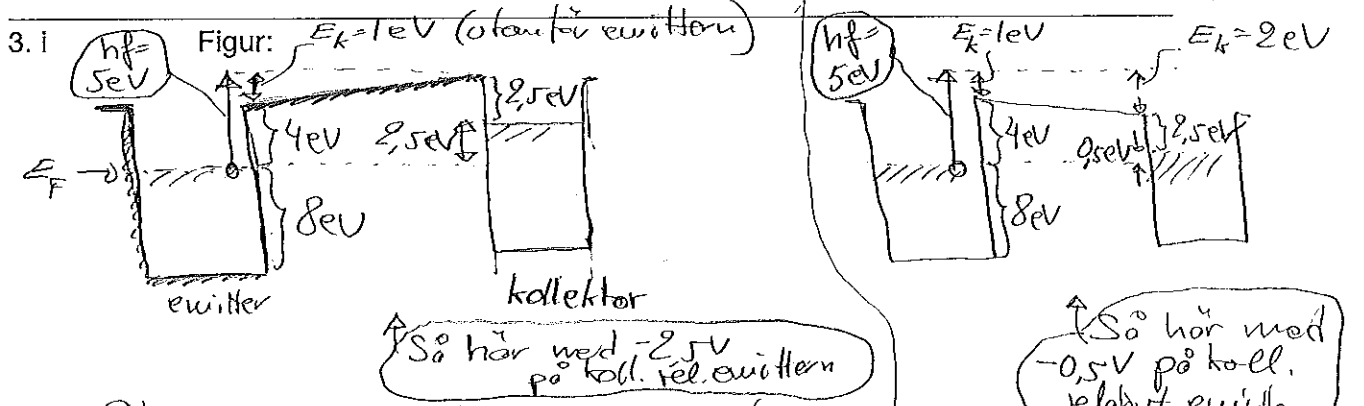 3. i Figur:
hf=
5eV
Ek=1eV (utanför emittern)
4eV
2,5eV
2,5eV
EF →
8eV
emitter
kollektor
Så här med -2,5V
på koll. rel. emittern
hf=
5eV
Ek=1eV
Ek=2eV
4eV
0,5eV
2,5eV
8eV
Så här med
-0,5V på koll.
relativt